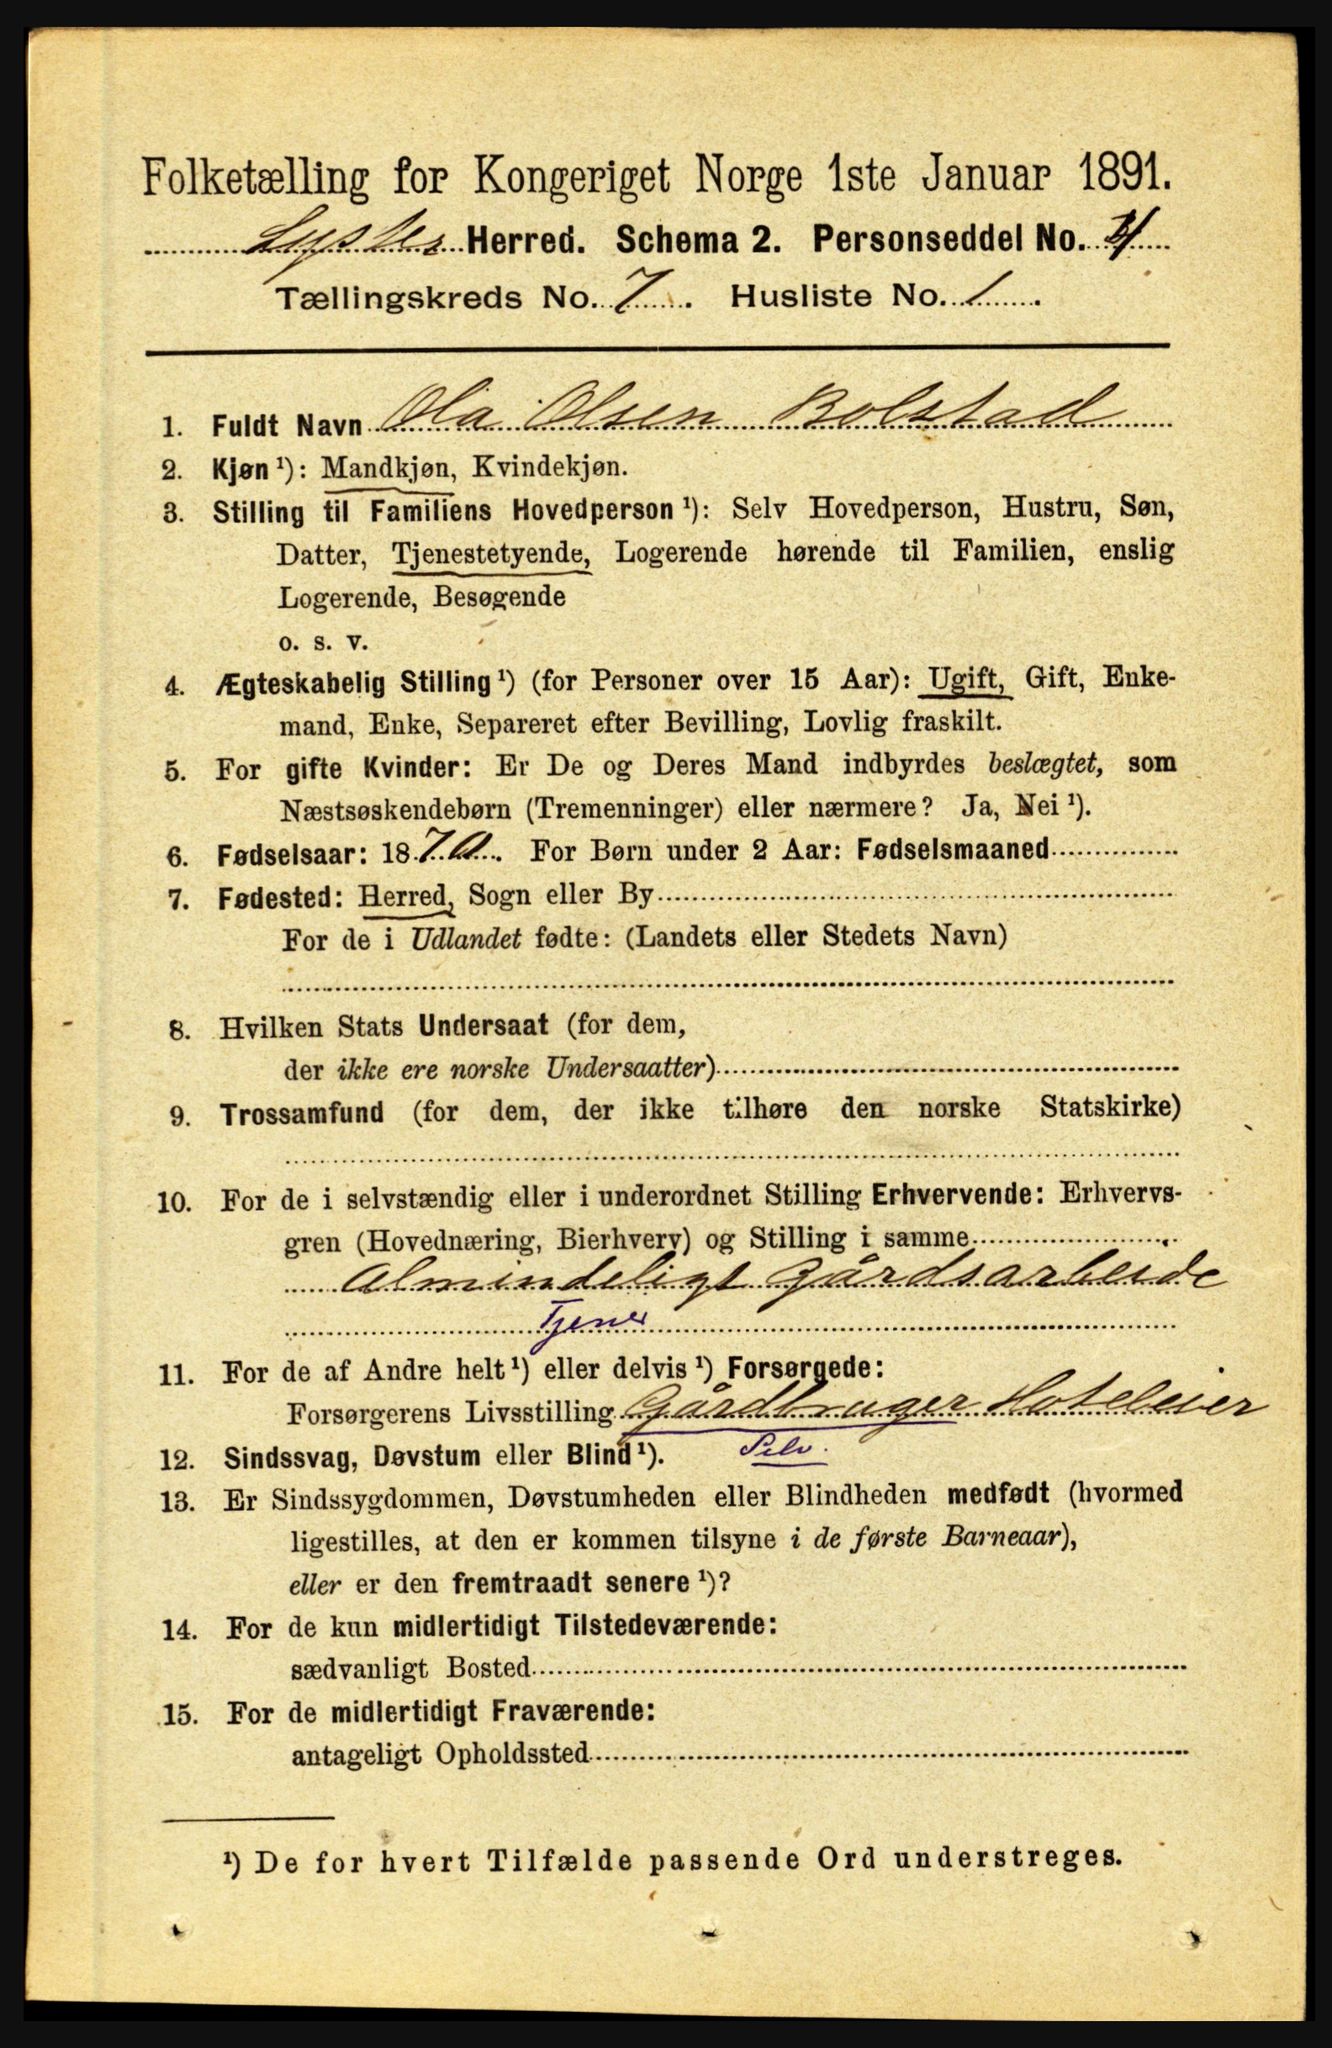 Folketælling for Kongeriget Norge 1ste Januar 1891.
Lyster Herred. Schema 2. Personseddel No. 4
Tællingskreds No. 7. Husliste No. 1.
1. Fuldt Navn Ola Olsen Bolstad
2. Kjøn ¹): Mandkjøn, Kvindekjøn.
3. Stilling til Familiens Hovedperson ¹): Selv Hovedperson, Hustru, Søn,
Datter, Tjenestetyende, Logerende hørende til Familien, enslig
Logerende, Besøgende
o. s. v.
4. Ægteskabelig Stilling ¹) (for Personer over 15 Aar): Ugift, Gift, Enke-
mand, Enke, Separeret efter Bevilling, Lovlig fraskilt.
5. For gifte Kvinder: Er De og Deres Mand indbyrdes beslægtet, som
Næstsøskendebørn (Tremenninger) eller nærmere? Ja, Nei ¹).
6. Fødselsaar: 1870. For Børn under 2 Aar: Fødselsmaaned
7. Fødested: Herred, Sogn eller By
For de i Udlandet fødte: (Landets eller Stedets Navn)
8. Hvilken Stats Undersaat (for dem,
der ikke ere norske Undersaatter)
9. Trossamfund (for dem, der ikke tilhøre den norske Statskirke)
10. For de i selvstændig eller i underordnet Stilling Erhvervende: Erhvervs-
gren (Hovednæring, Bierhverv) og Stilling i samme
Almindeligt Gårdsarbeide
Tjener
11. For de af Andre helt ¹) eller delvis ¹) Forsørgede:
Forsørgerens Livsstilling Gårdbruger Hoteleier
12. Sindssvag, Døvstum eller Blind ¹). Selv.
13. Er Sindssygdommen, Døvstumheden eller Blindheden medfødt (hvormed
ligestilles, at den er kommen tilsyne i de første Barneaar),
eller er den fremtraadt senere ¹)?
14. For de kun midlertidigt Tilstedeværende:
sædvanligt Bosted
15. For de midlertidigt Fraværende:
antageligt Opholdssted
¹) De for hvert Tilfælde passende Ord understreges.